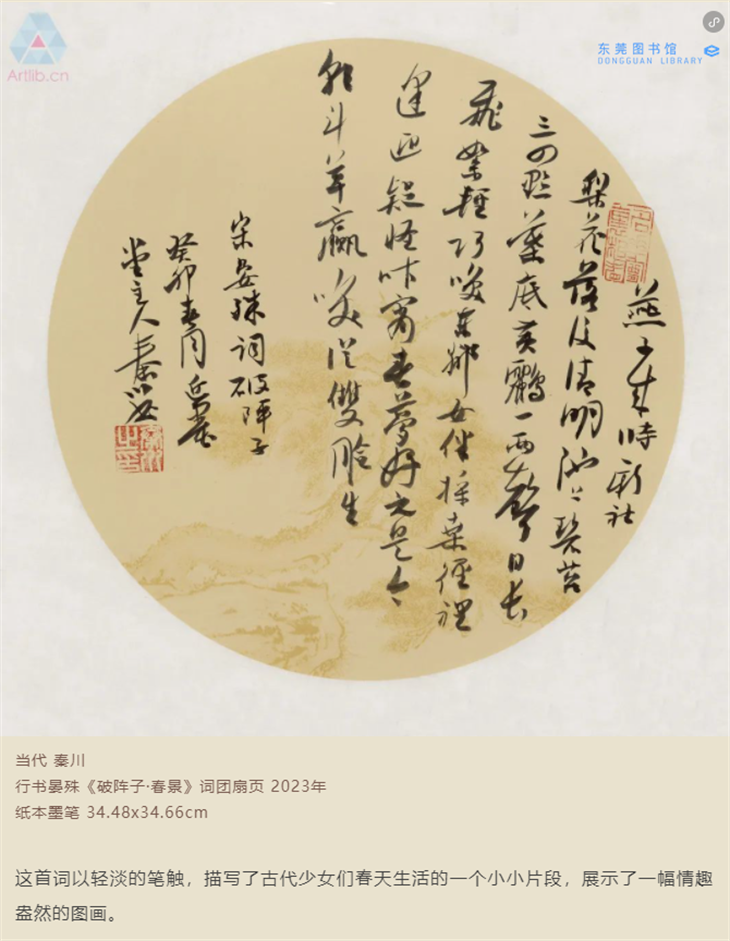 Artlib.cn
东莞图书馆
DONGGUAN LIBRARY
燕子来時新社
梨花落後清明池上碧苔
三四點葉底黄鸝一两聲日長
飛絮輕巧笑東鄰女伴採桑徑裡
逢迎疑怪昨宵春夢好元是今
朝斗草贏笑從雙臉生
宋晏殊词破陣子
癸卯春月
堂主人秦川
当代 秦川
行书晏殊《破阵子·春景》词团扇页 2023年
纸本墨笔 34.48x34.66cm
这首词以轻淡的笔触，描写了古代少女们春天生活的一个小小片段，展示了一幅情趣
盎然的图画。